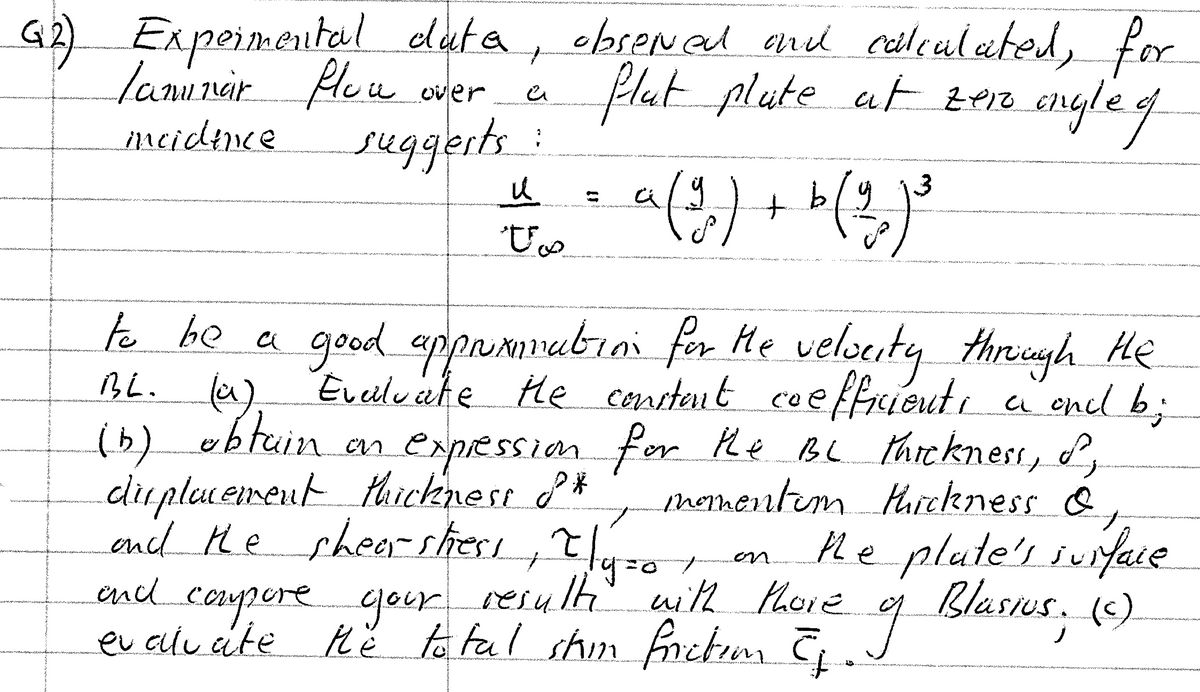 Q2) Expeimental data, observed and calculated, for
laminar flow over a flat plate at zero angle of
incidence suggests :
u/U∞ = a(y/δ) + b(y/δ)³
to be a good approximation for the velocity through the
BL. (a) Evaluate the constant coefficients a and b;
(b) obtain an expression for the BL thickness, δ,
displacement thickness δ*, momentum thickness θ,
and the shear-stress, τ|y=0, on the plate's surface
and compare your results with those of Blasius; (c)
evaluate the total skin friction C̄f.